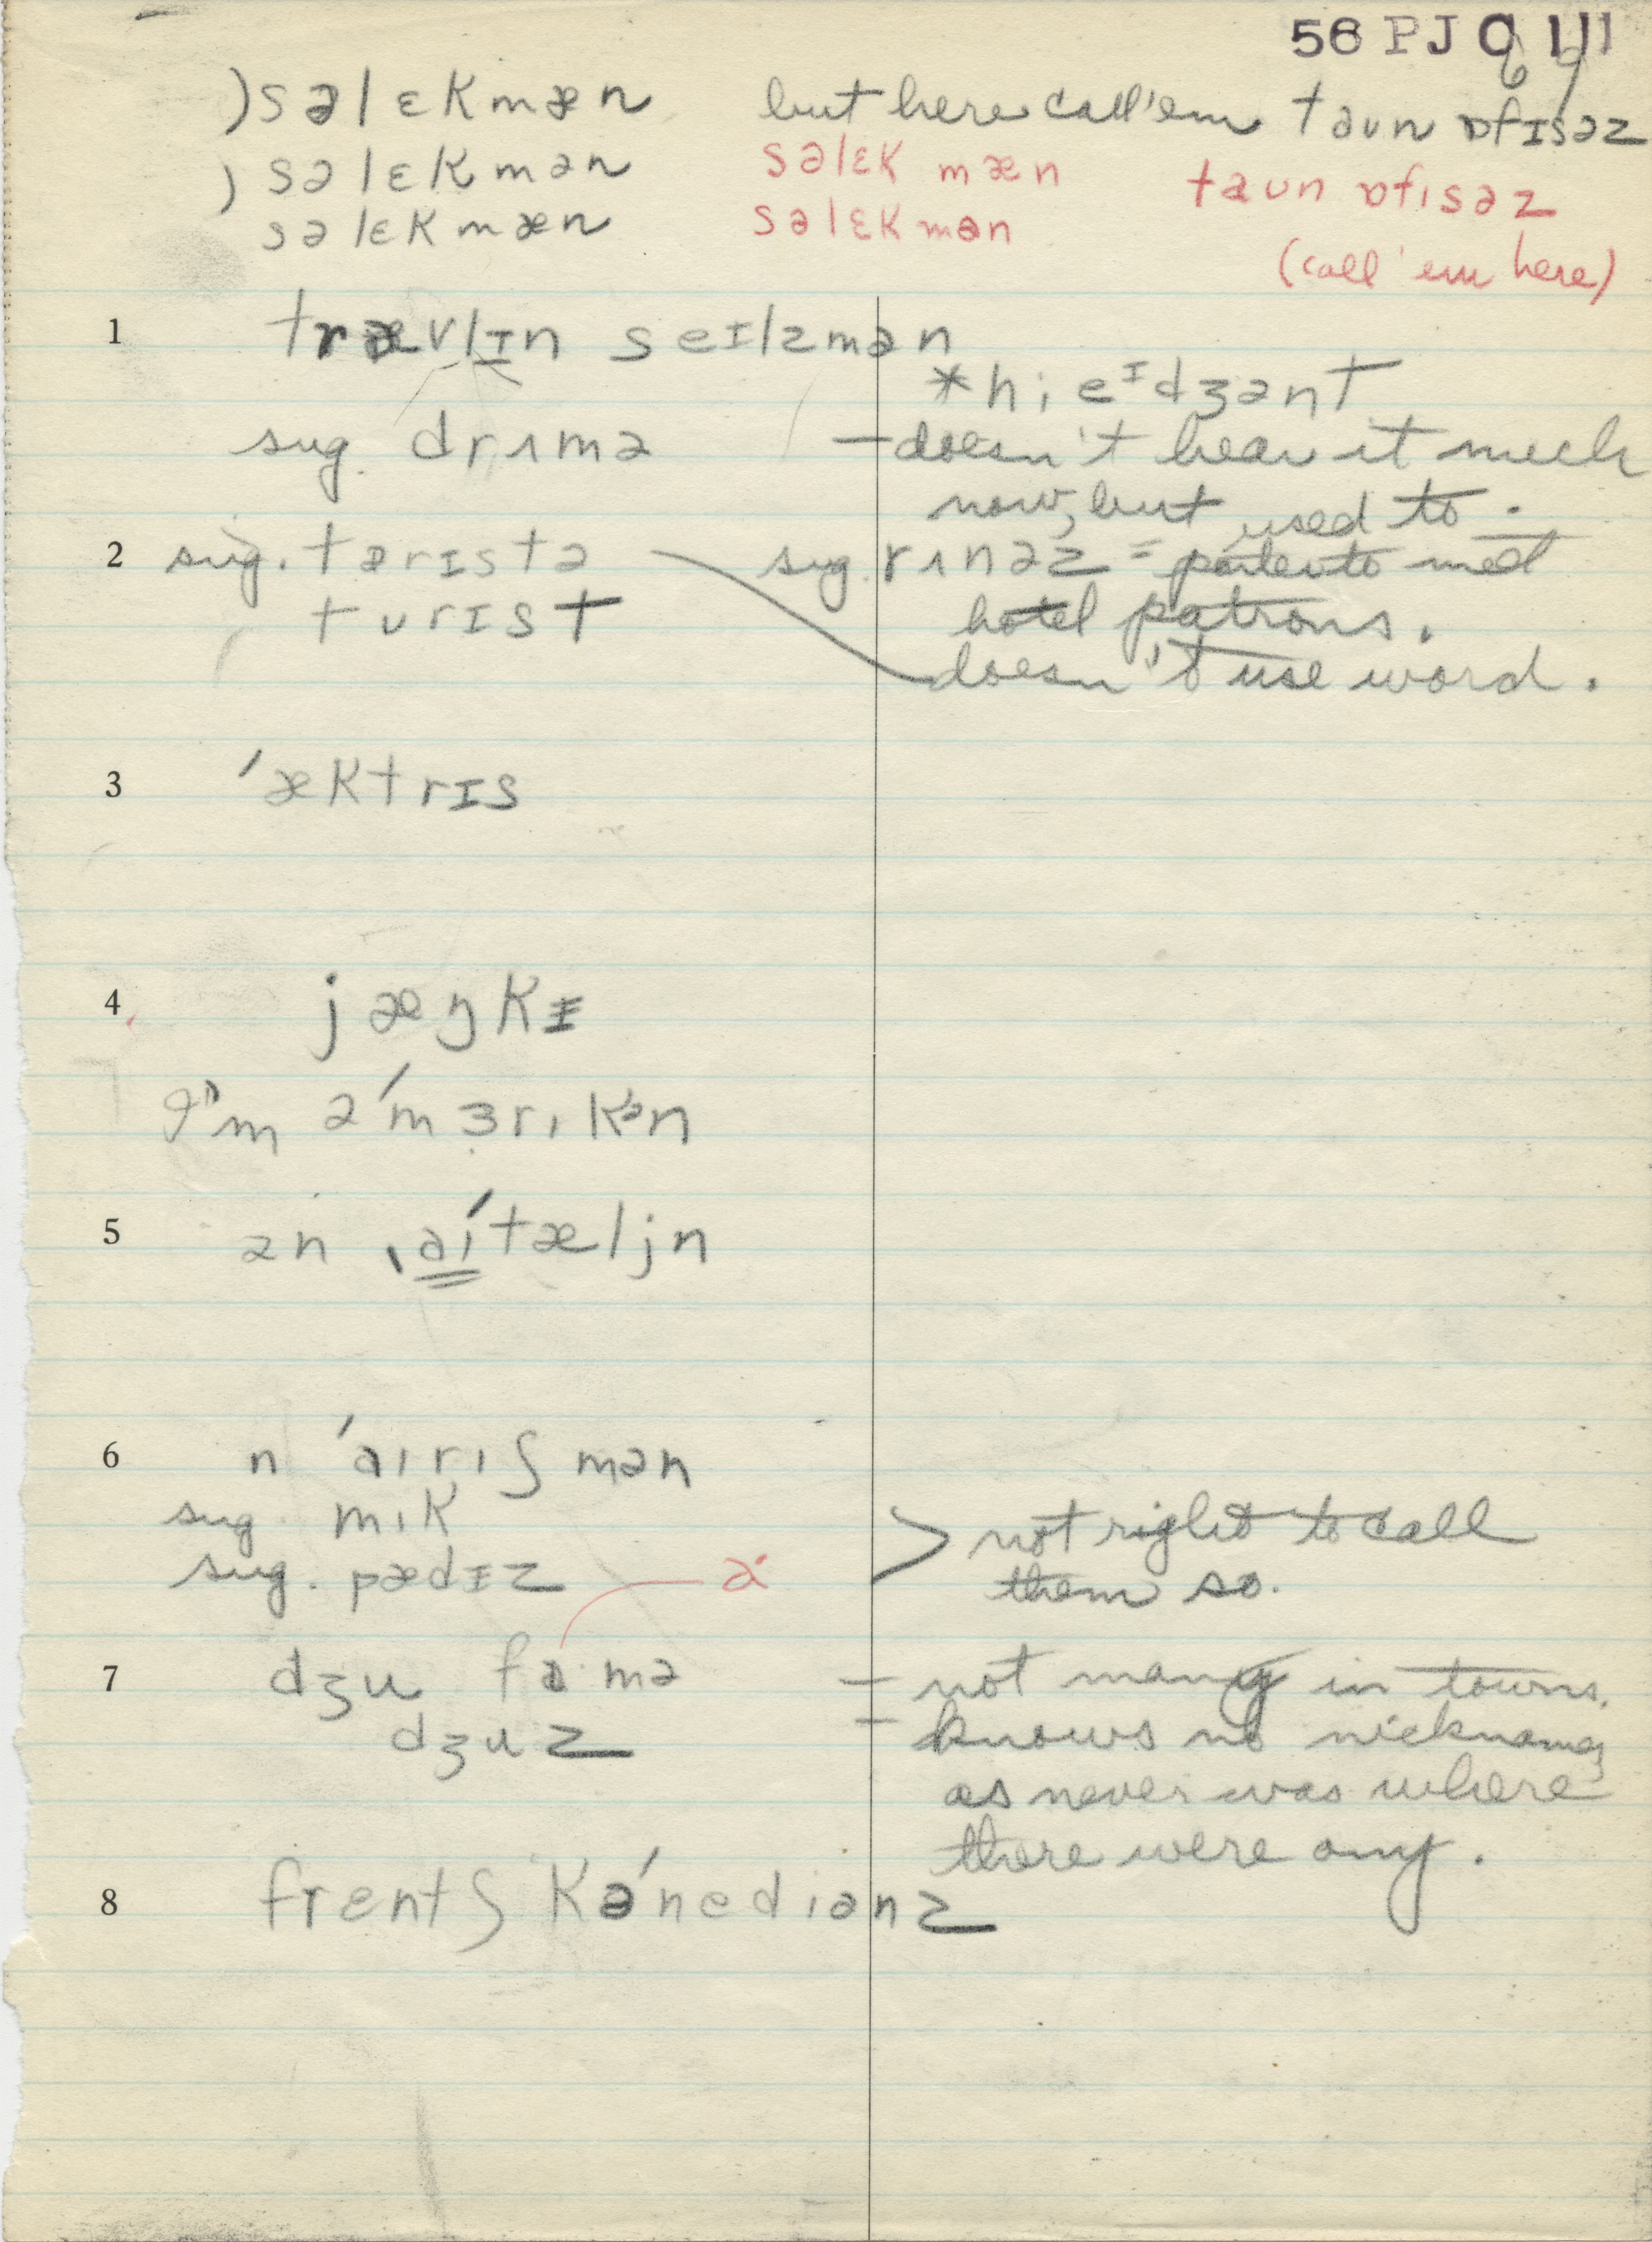 56 PJ C 111
69
) səlɛkmæn but here call 'em taun ɒfɪsəz
) səlɛkmən səlɛk mæn taun ɒfɪsəz
səlɛkmæn səlɛkmən
(call 'em here)
1 trævlɪn seɪlzmən
*hi eɪdʒənt
sug. drʌmə — doesn't hear it much
now, but used to.
2 sug. tərɪstə sug. rʌnəz = met
turɪst hotel patrons.
doesn't use word.
3 ˈæktrɪs
4 jæŋkɪ
I'm əˈmɜrıkən
5 ən ˌaıˈtæljn
6 n ˈaırıʃmən
sug. mık > not right to call
sug. pædɪz a them so.
7 dʒu famə — not many in towns.
dʒuz — knows no nicknames
as never was where
there were any.
8 frentʃ kəˈnedıənz